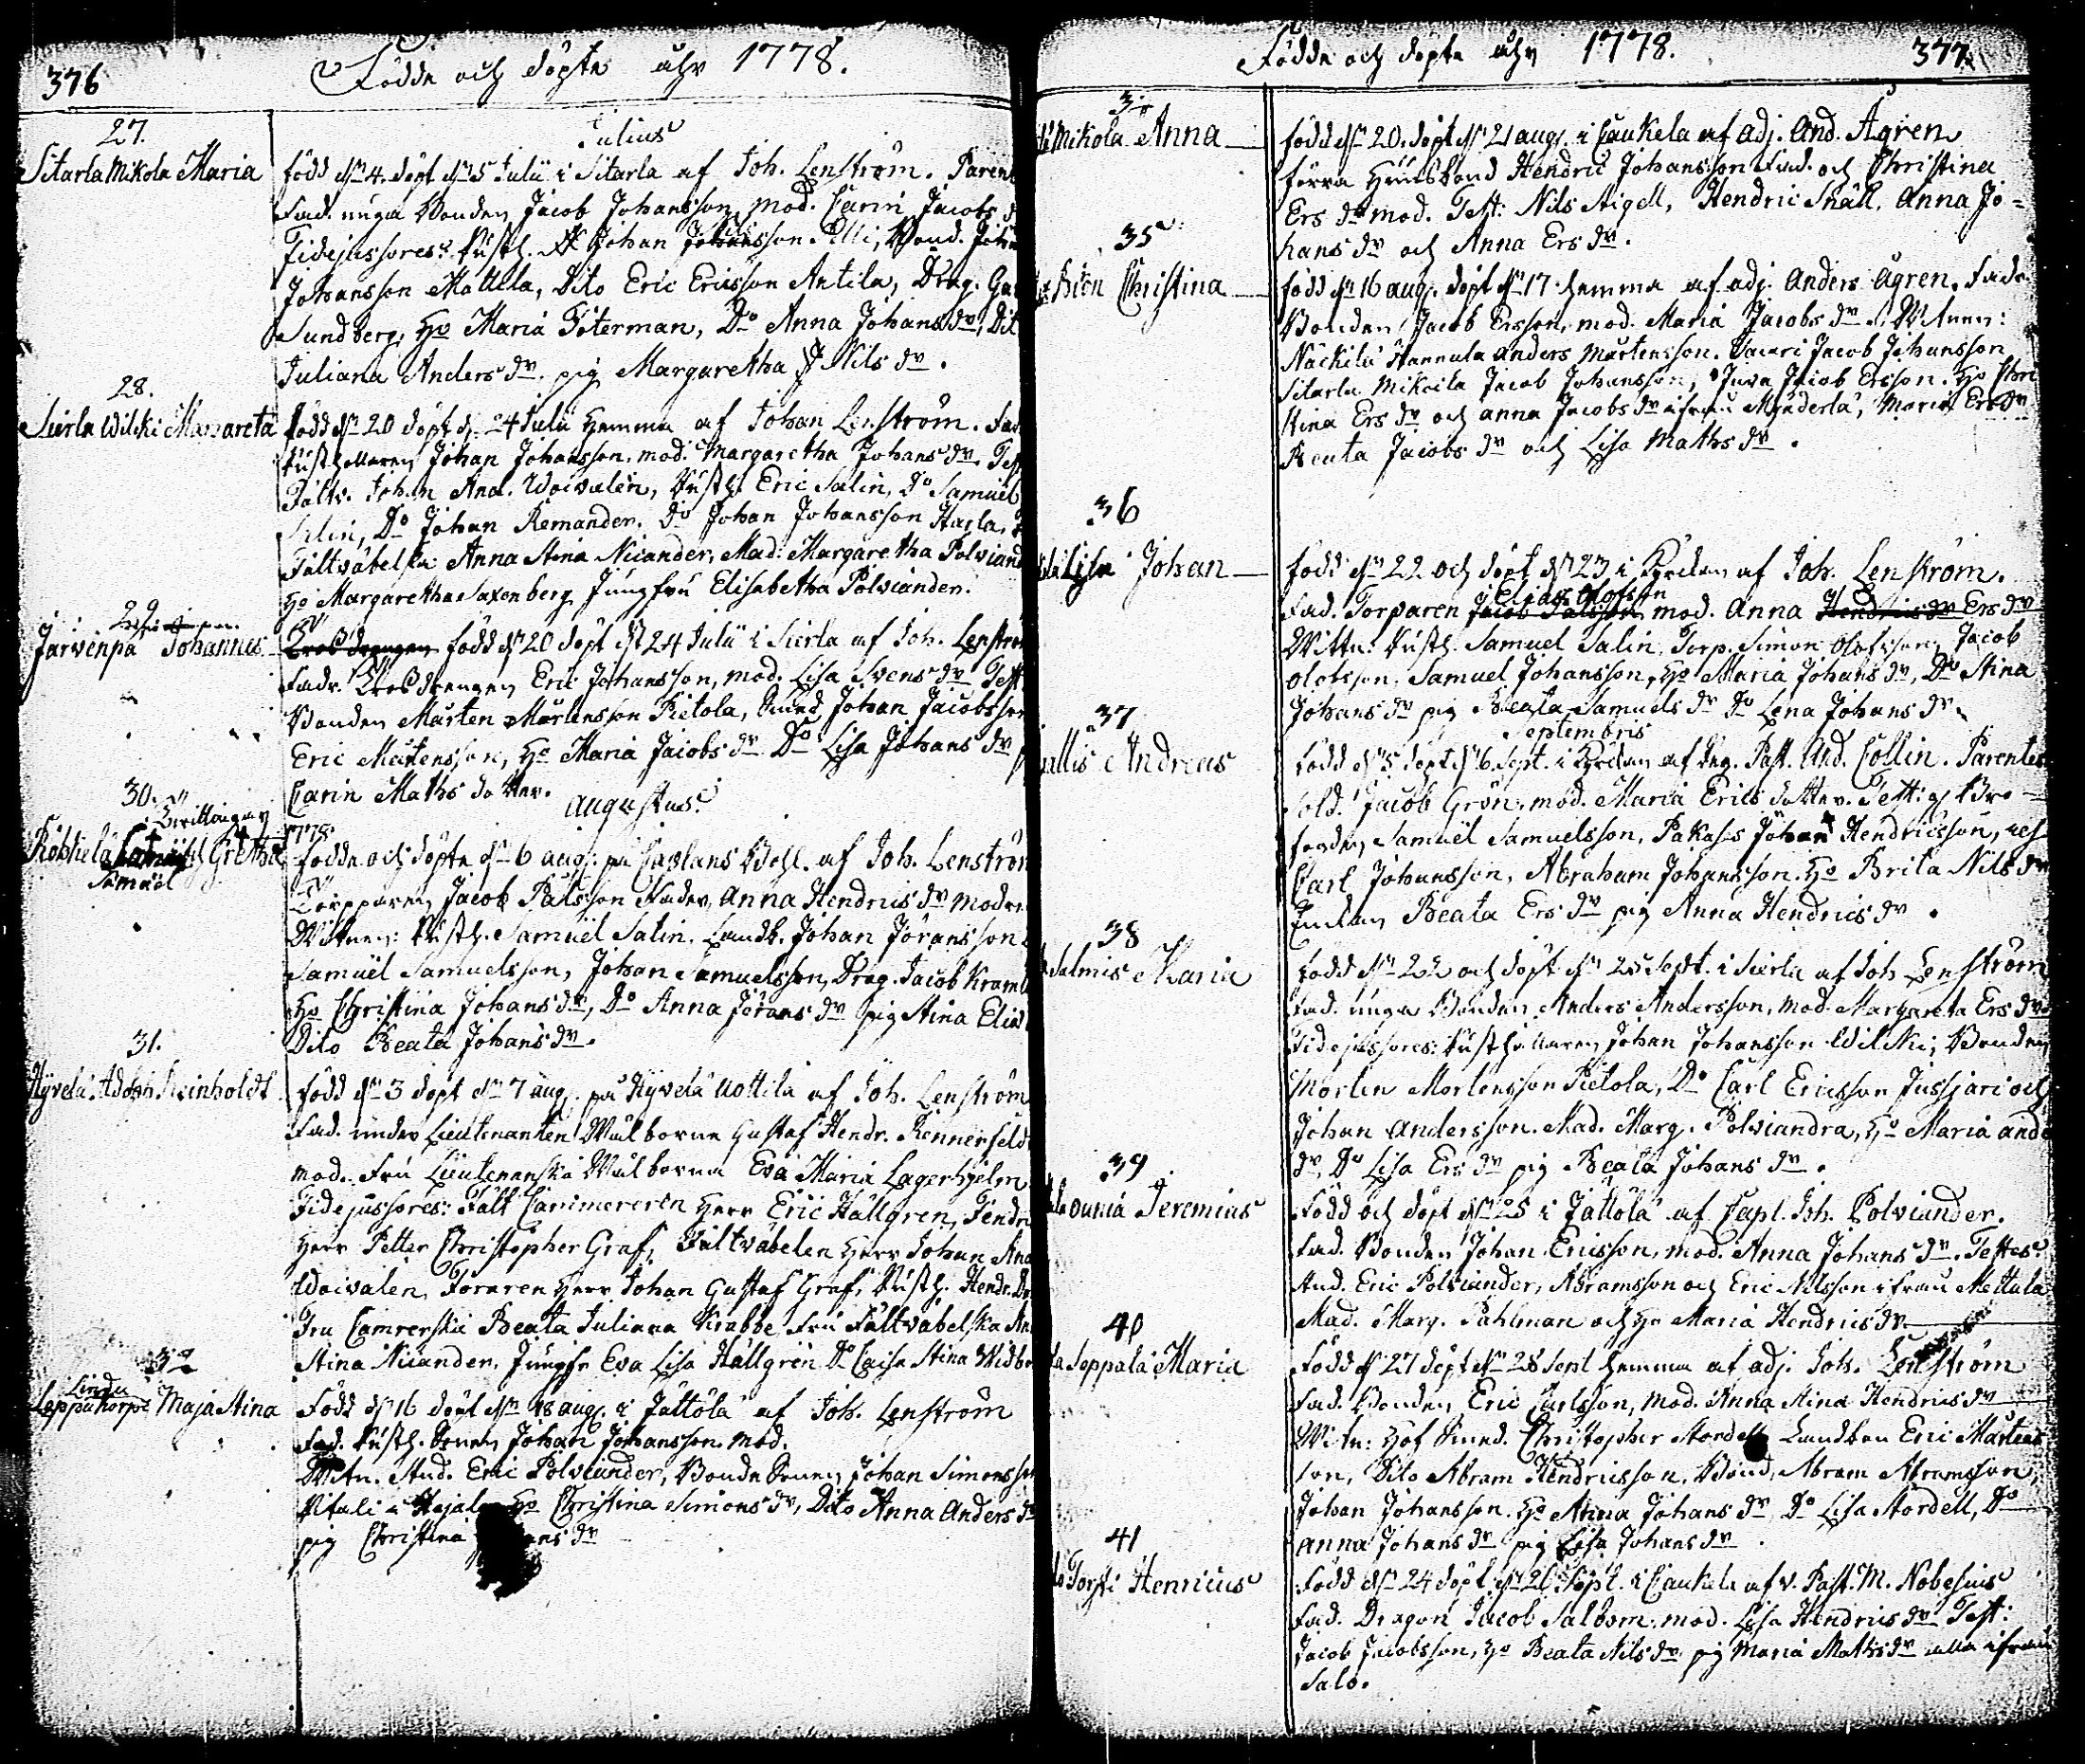 376
Födde och döpte åhr 1778.
Julius
27.
Sitarla Mikola Maria
född dn 4. döpt dn 5 Julii i Sitarla af Joh. Lenström. Parent
Fad. unga Bonden Jacob Johansson, mod. Carin Jacobs d
Fidejussores: Rusth. Johan Johansson Pilli, Bond. Joh
Johansson Mattila, Dito Eric Ericsson Antila, Drag. Gu
Sundberg, Ho Maria Föterman, Do Anna Johans dr, Dit
Juliana Anders dr. pig Margaretha Nils dr.
28.
Sierla Wilcki Margareta
född dn 20 döpt d. 24 Julii hemma af Johan Lenström. Fad
Rusthollaren Johan Johansson, mod. Margaretha Johans dr. Test
Fältv. Johan And. Woivalen, Rusth. Eric Salin, Do Samuel
Salin, Do Johan Remander. Do Johan Johansson Harla,
Fältväbelska Anna Stina Nicander, Mad. Margaretha Polviand
Ho Margaretha Saxenberg Jungfru Elisabetha Polviander.
29
Järvenpä Johannes
född dn 20 döpt dn 24 Julii i Sierla af Joh. Lenström
Fadr. Drengen Eric Johansson, mod. Lisa Svens dr Test.
Bonden Mårten Mårtensson Pietola, Smed Johan Jacobsson
Eric Mårtensson, Ho Maria Jacobs dr Do Lisa Johans dr p
Carin Maths dotter.
Augustus.
30.
Tvillingar
Röökelä Grethe
Samuel
1778.
födde och döpte dn 6 aug. på Caplans Bohl. af Joh. Lenström
Torpparen Jacob Pålsson Fader, Anna Hendrics dr modr.
Witnen: Rusth. Samuel Salin. Landb. Johan Jöransson
Samuel Samuelsson, Johan Samuelsson, Drag. Jacob Kram
Ho Christina Johans dr, Do Anna Jörans dr pig Stina Elia
Dito Beata Johans dr.
31.
Hyvelä Adolph Reinholdt
född dn 3 döpt dn 7 aug. på Hyvelä Uottila af Joh. Lenström
Fad. under Lieutenanten Wälborne Gustaf Hendr. Rennerfeldt
mod. Fru Lieutenenska Wälborna Eva Maria Lagerhjelm
Fidejussores: Fält Cammereren Herr Eric Hällgren, Fendri
Herr Petter Christopher Graf, Fältväbelen Herr Johan And
Woivalen, Föraren Herr Johan Gustaf Graf, Rusth. Hendr.
Fru Camrerska Beata Juliana Krabbe Fru Fältväbelska An
Stina Nicander. Jungfr Eva Lisa Hällgrén Do Caisa Stina Widbo
32
Linda
Leppäkorpi Maja Stina
född dn 16 döpt dn 18 aug. i Jättölä af Joh. Lenström
Fad. Rusth. Sonen Johan Johansson. mod.
Witn. Stud. Eric Polviander, Bonde Sonen Johan Simonsson
Vitali i Ho Christina Simons dr, Dito Anna Anders dr
pig Christina
Födde och döpte åhr 1778.
377.
34
Mikola Anna
född dn 20. döpt dn 21 aug. i Caukela af adj. And. Ågren
förra Husbond Hendric Johansson Fad. och Christina
Ers dr mod. Test: Nils Aigell, Hendric Snäll, Anna Jo-
hans dr och Anna Ers dr.
35
Christina
född dn 16 aug. döpt dn 17 hemma af adj. Anders Ågren. Fad.
Bonden Jacob Ersson, mod. Maria Jacobs dr. Witnen:
Näckilä Hannula Anders Mårtensson. Jacob Johansson
Sitarla Mikola Jacob Johansson, Juva Jacob Ersson. Ho Chri
stina Ers dr och Anna Jacobs dr ifrån Maria Ers dr
Beata Jacobs dr och Lisa Maths dr.
36
Lisa Johan
född dn 22 och döpt dn 23 i Kyrckan af Joh. Lenström.
Elias Olofsson
Fad. Torparen Jacob Pålsson mod. Anna Hendricsdr Ers dr
Wittn: Rusth. Samuel Salin, Torp. Simon Olofsson, Jacob
Olofsson, Samuel Johansson, Ho Maria Johans dr, Do Stina
Johans dr pig Beata Samuels dr Do Lena Johans dr.
Septembris
37
Andreas
född dn 5 döpt dn 6 Sept. i Kyrckan af Reg. Past. And. Collin. Parentes
Sold. Jacob Grön, mod. Maria Erics dotter. Test:
Samuel Samuelsson, Pakases Johan Hendricsson,
Carl Johansson, Abraham Johansson. Ho Brita Nils dr
Enkan Beata Ers dr pig Anna Hendrics dr.
38
Salmis Maria
född dn 22 och döpt dn 25 Sept. i Sierla af Joh Lenström
Fad. unga Bonden Anders Andersson, mod. Margareta Ers dr.
Fidejussores: Rusthollaren Johan Johansson Wilcki, Bonden
Morten Mortensson Pietola, Do Carl Ericsson Jussjari och
Johan Andersson. Mad. Marg. Polviandra, Ho Maria And
dr, Do Lisa Ers dr pig Beata Johans dr.
39
ounia Jeremias
Född och döpt dn 25 i Jättölä af Capl. Joh. Polviander.
Fad. Bonden Johan Ericsson, mod. Anna Johans dr. Testes
Stud. Eric Polviander, Abramsson och Eric Nilsson ifrån Mettala
Mad. Marg. Pahlman och Ho Maria Hendrics dr.
40
Seppälä Maria
född dn 27 döpt dn 28 Sept hemma af adj. Joh. Lenström
Fad. Bonden Eric Carlsson, mod. Anna Stina Hendrics dr
Witn: Hof Smed. Christopher Stordell Landbon Eric Mårtens
son, Dito Abram Hendricsson, Bond. Abram Abramsson,
Johan Johansson. Ho Anna Johans dr Do Lisa Stordell, Do
Anna Johans dr pig Lisa Johans dr
41
Torsti Henricus
född dn 24 döpt dn 26 Sept. i Caukela af v. Past. M. Nobesius
Fad. Dragon Jacob Salbom. mod. Lisa Hendrics dr Test:
Jacob Jacobsson, Ho Beata Nils dr pig Maria Maths dr alla ifrån
Salo.